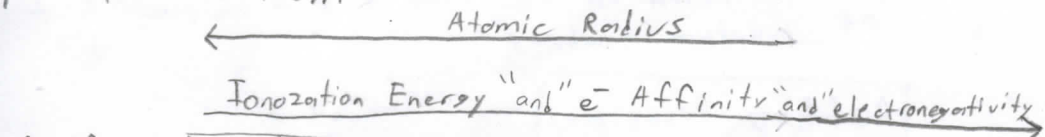 Atomic Radius
Ionozation Energy "and" e⁻ Affinity "and" electronegativity